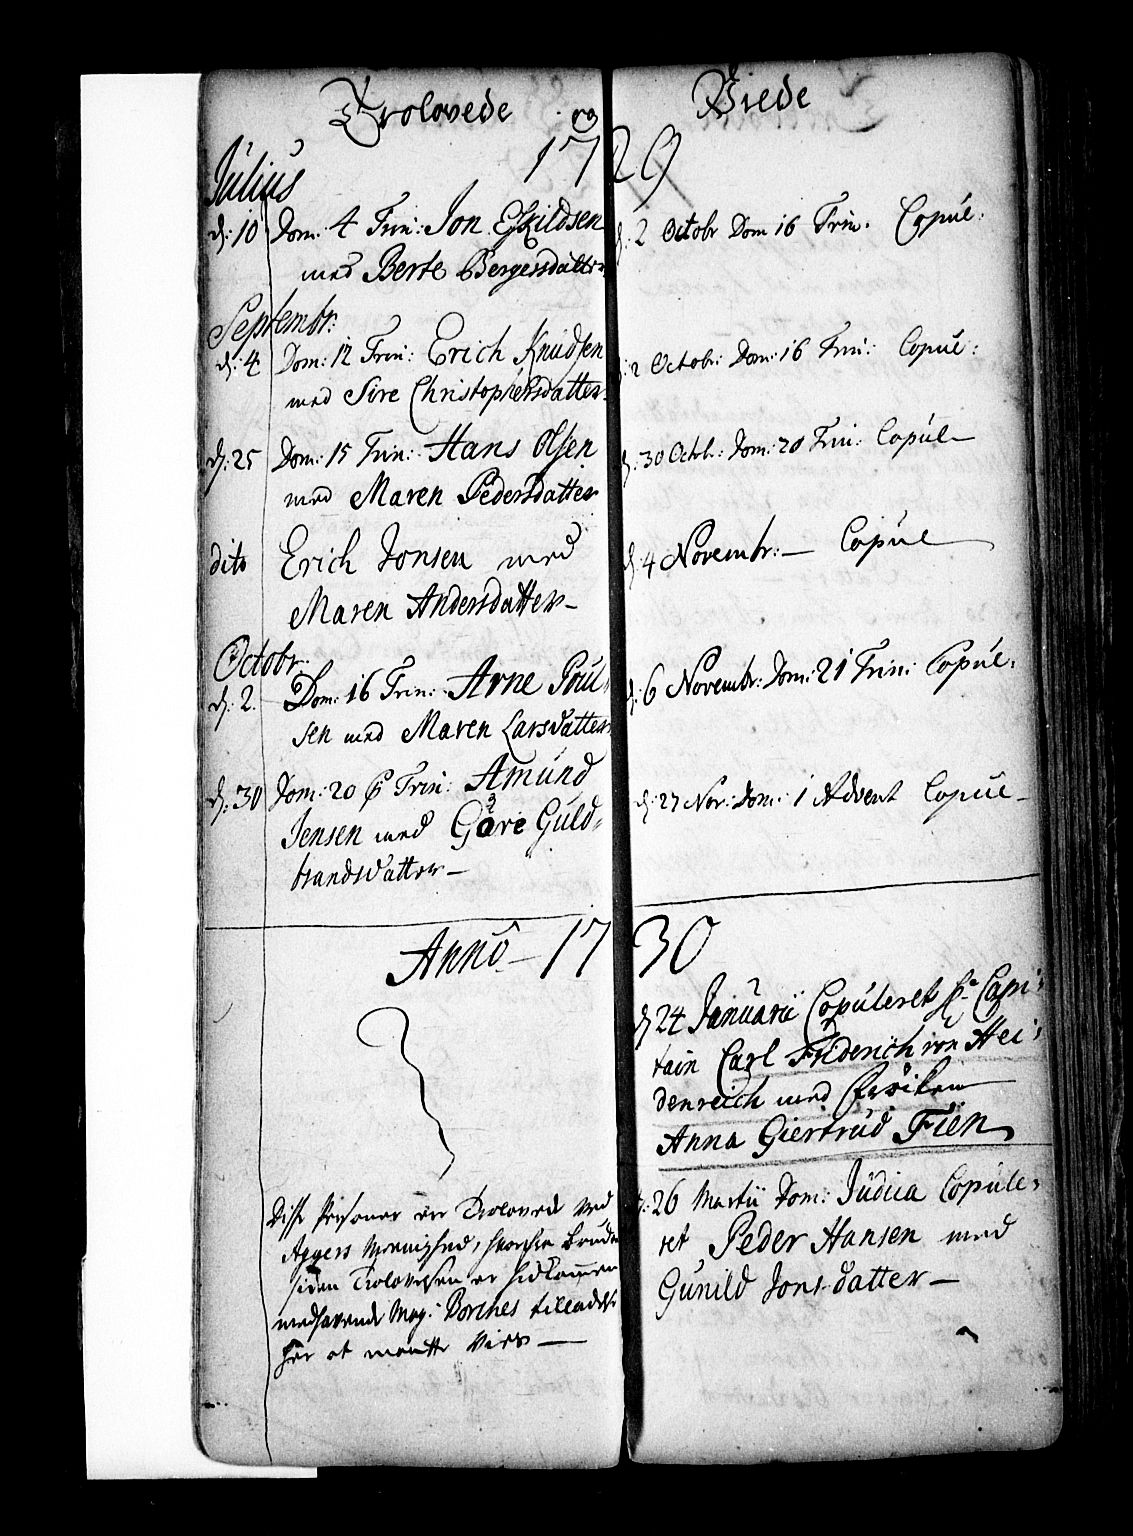 Trolovede og Viede
1729
Julius
d: 10 Dom. 4 Trin: Jon Eskildsen
med Berte Bergersdatter
d: 2 Octobr Dom 16 Trin. Copul:
Septembr:
d: 4 Dom: 12 Trin: Erich Knudsen
med Sire Christophersdatter
d: 2 Octobr: Dom: 16 Trin: Copul:
d: 25 Dom: 15 Trin: Hans Olsen
med Maren Pedersdatter
d: 30 Octb: Dom: 20 Trin: Copul
dito Erich Jonsen med
Maren Andersdatter
d: 4 Novembr: Copul
Octobr:
d: 2. Dom: 16 Trin: Arne Poul-
sen med Maren Larsdatter
d: 6 Novembr: Dom: 21 Trin: Copul:
d: 30 Dom: 20 p Trin: Amund
Jensen med Gure Guld-
brandsdatter
d: 27 Nov: Dom: 1 Advent Copul
Anno 1730
d 24 Januarii Copuleret Hr Capi-
tain Carl Friderich von Hei-
denreich med Frøiken
Anna Giertrud Fien
Disse Personer er Trolovede ved
Aggers Menighed, hvorfra Bruden
siden Trolovelsen er hidkommen
medhavende Mag: Borthes tilladelse
her at maatte Vies
d: 26 Martii Dom: Judica Copule-
ret Peder Hansen med
Gunild Jonsdatter